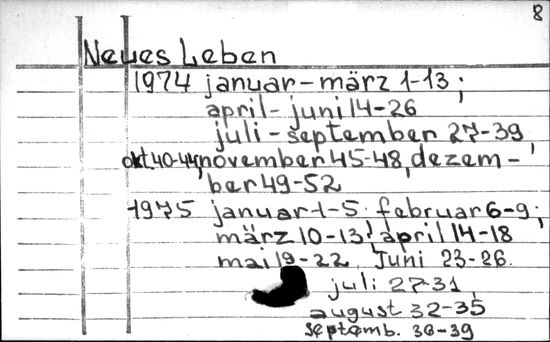 8
Neues Leben
1974 januar-märz 1-13;
april-juni 14-26
juli-september 27-39,
okt.40-44, november 45-48, dezem-
ber 49-52
1975 januar 1-5; februar 6-9;
märz 10-13; april 14-18
mai 19-22, Juni 23-26.
juli 27-31,
august 32-35
septemb. 36-39